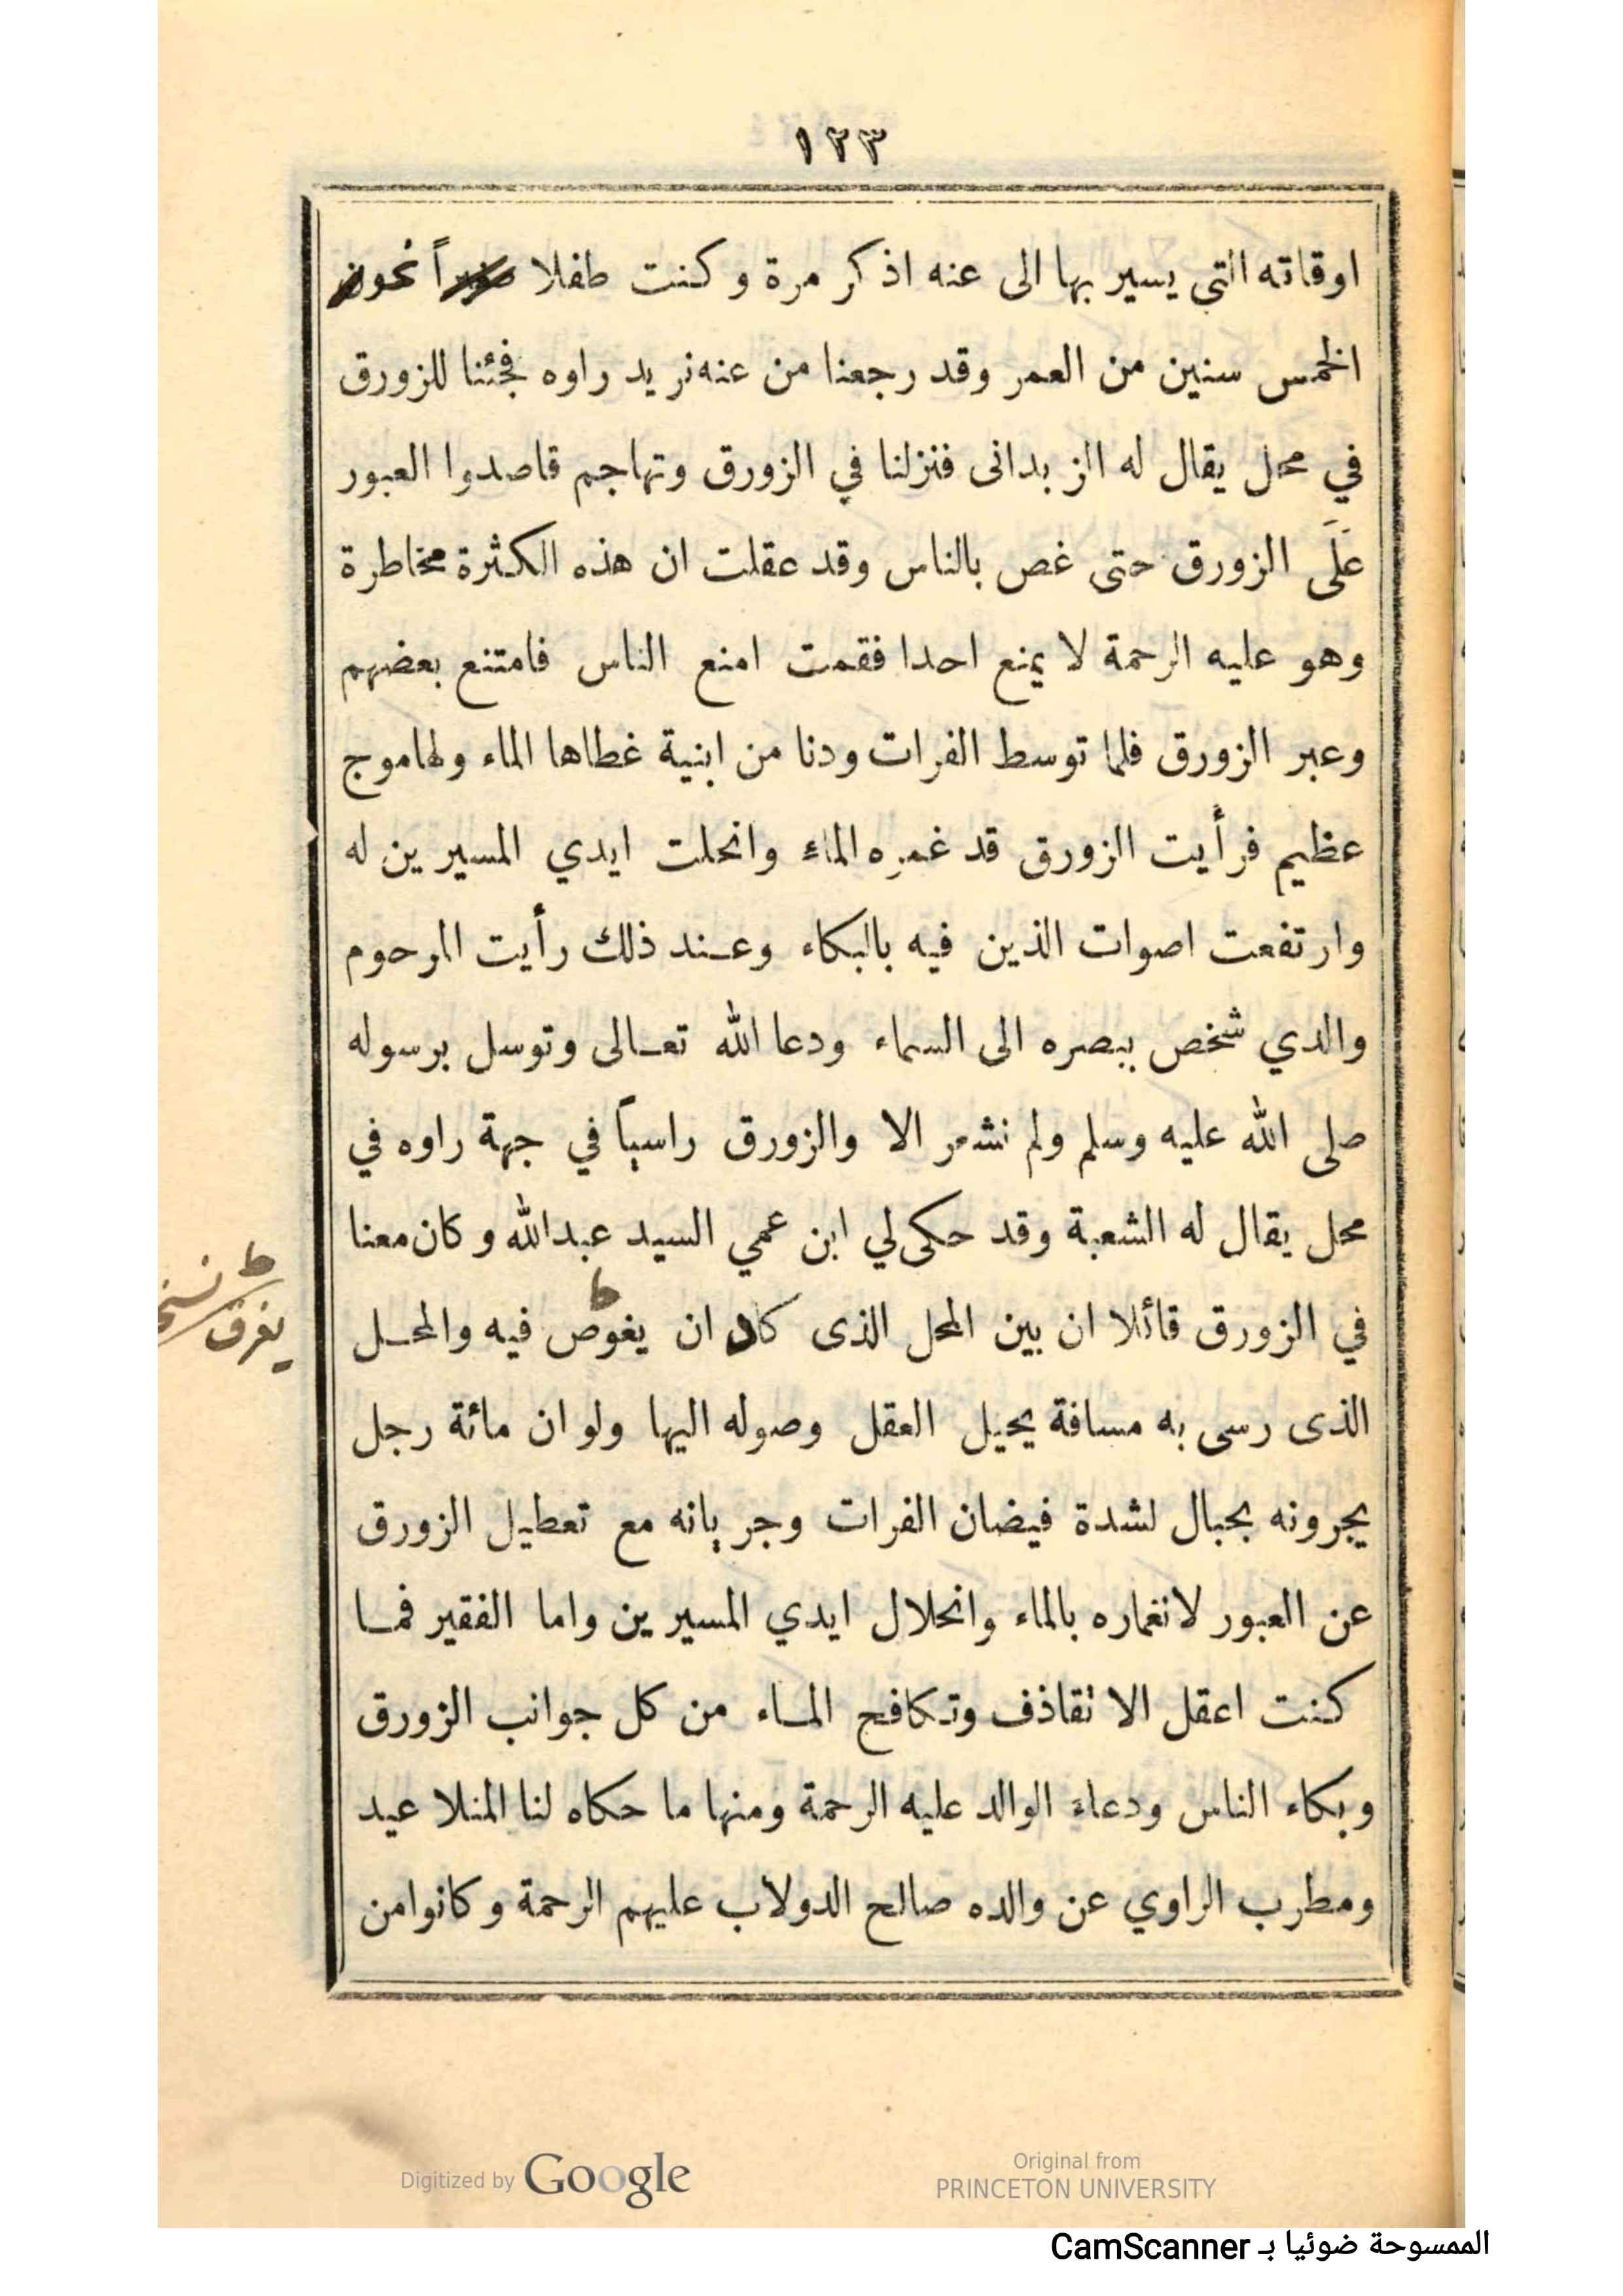 ١٢٣
اوقاته التي يسير بها الى عنه اذكر مرة وكنت طفلا نحو
الخمس سنين من العمر وقد رجعنا من عنه نريد راوه فجئنا للزورق
في محل يقال له الزبدانى فنزلنا في الزورق وتهاجم قاصدوا العبور
عَلَى الزورق حتى غص بالناس وقد عقلت ان هذه الكثرة مخاطرة
وهو عليه الرحمة لا يمنع احدا فقمت امنع الناس فامتنع بعضهم
وعبر الزورق فلما توسط الفرات ودنا من ابنية غطاها الماء ولها موج
عظيم فرأيت الزورق قد غمره الماء وانحلت ايدي المسيرين له
وارتفعت اصوات الذين فيه بالبكاء وعند ذلك رأيت المرحوم
والدي شخص ببصره الى السماء ودعا الله تعالى وتوسل برسوله
صلى الله عليه وسلم ولم نشعر الا والزورق راسياً في جهة راوه في
محل يقال له الشعبة وقد حكى لي ابن عمي السيد عبدالله وكان معنا
في الزورق قائلا ان بين المحل الذى كاد ان يغوص فيه والمحل
ط نسخ
يغرق
الذى رسى به مسافة يحيل العقل وصوله اليها ولو ان مائة رجل
يجرونه بحبال لشدة فيضان الفرات وجريانه مع تعطيل الزورق
عن العبور لانغماره بالماء وانحلال ايدي المسيرين واما الفقير فما
كنت اعقل الا تقاذف وتكافح الماء من كل جوانب الزورق
وبكاء الناس ودعاء الوالد عليه الرحمة ومنها ما حكاه لنا المنلا عيد
ومطرب الراوي عن والده صالح الدولاب عليهم الرحمة وكانوا من
Digitized by Google
Original from
PRINCETON UNIVERSITY
الممسوحة ضوئيا بـ CamScanner